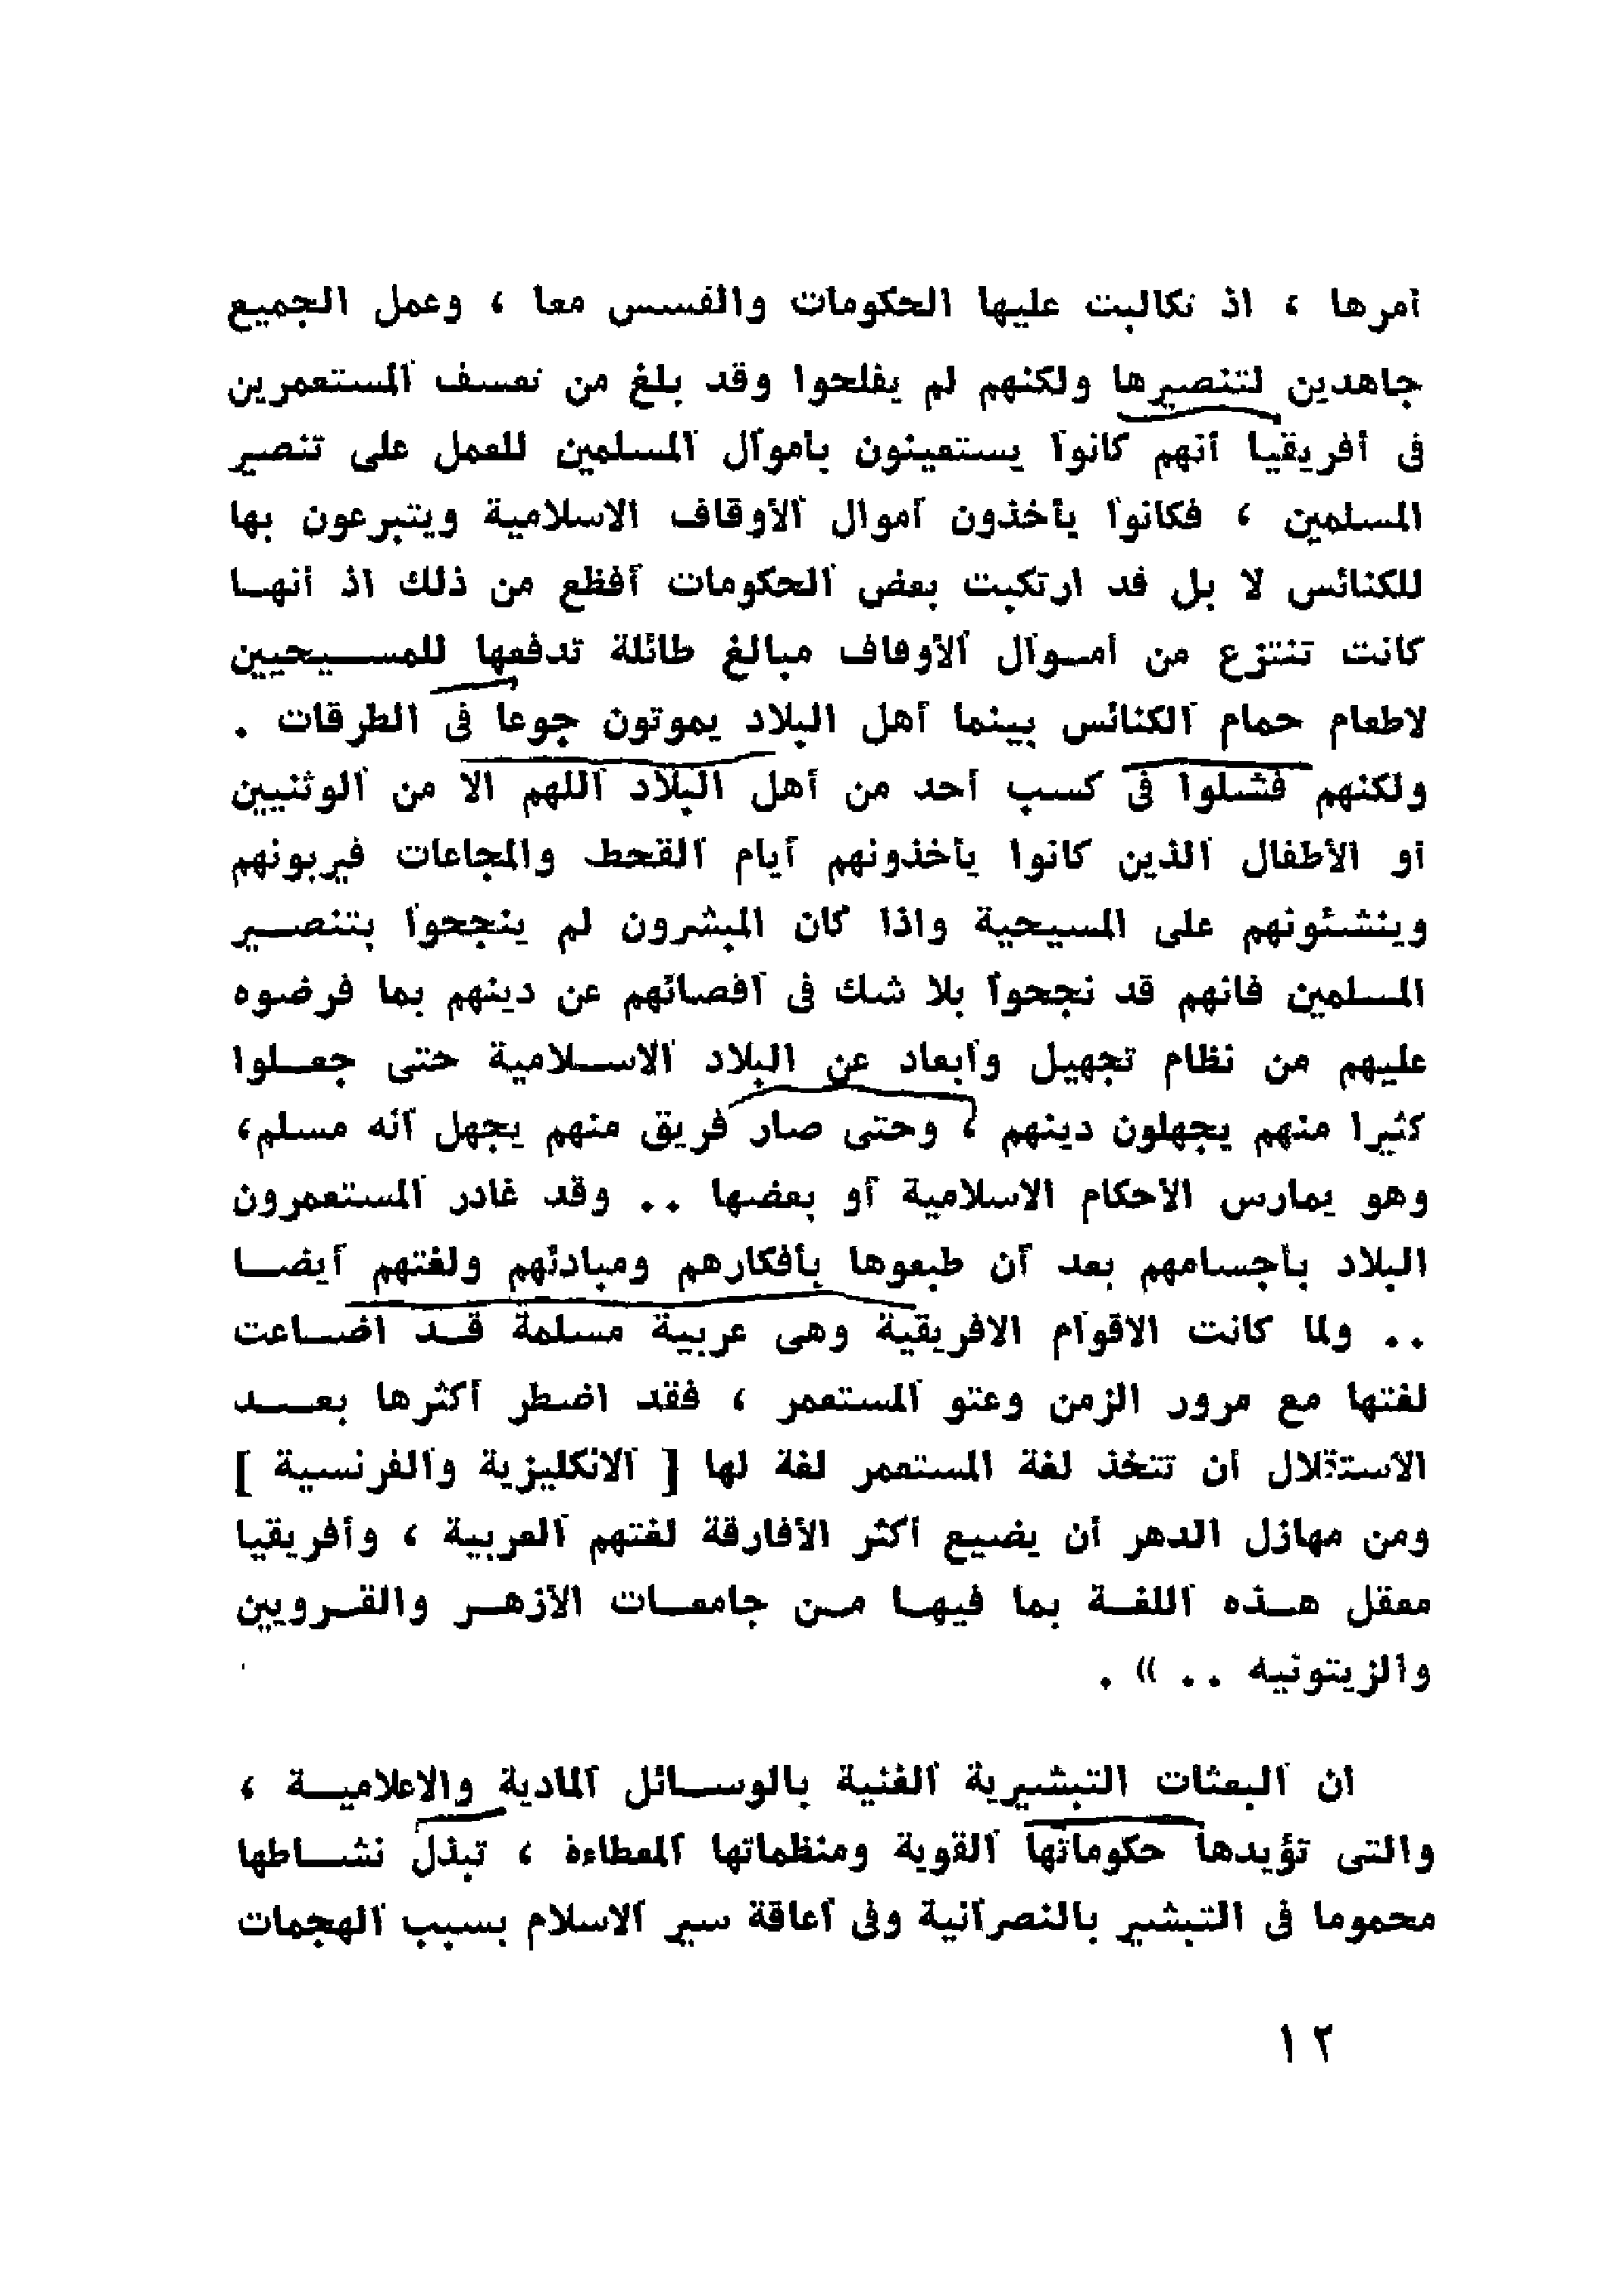 أمرها ، اذ تكالبت عليها الحكومات والقسس معا ، وعمل الجميع
جاهدين لتنصيرها ولكنهم لم يفلحوا وقد بلغ من تعسف المستعمرين
فى أفريقيا أنهم كانوا يستعينون بأموال المسلمين للعمل على تنصير
المسلمين ، فكانوا يأخذون أموال الأوقاف الاسلامية ويتبرعون بها
للكنائس لا بل قد ارتكبت بعض الحكومات أفظع من ذلك اذ أنهــا
كانت تنتزع من أمــوال الأوقاف مبالغ طائلة تدفعها للمســـيحيين
لاطعام حمام الكنائس بينما أهل البلاد يموتون جوعا فى الطرقات .
ولكنهم فشلوا فى كسب أحد من أهل البلاد اللهم الا من الوثنيين
أو الأطفال الذين كانوا يأخذونهم أيام القحط والمجاعات فيربونهم
وينشئونهم على المسيحية واذا كان المبشرون لم ينجحوا بتنصـــير
المسلمين فانهم قد نجحوا بلا شك فى اقصائهم عن دينهم بما فرضوه
عليهم من نظام تجهيل وابعاد عن البلاد الاســلامية حتى جعــلوا
كثيرا منهم يجهلون دينهم ، وحتى صار فريق منهم يجهل أنه مسلم،
وهو يمارس الأحكام الاسلامية أو بعضها .. وقد غادر المستعمرون
البلاد بأجسامهم بعد أن طبعوها بأفكارهم ومبادئهم ولغتهم أيضــا
.. ولما كانت الاقوام الافريقية وهى عربية مسلمة قــد اضــاعت
لغتها مع مرور الزمن وعتو المستعمر ، فقد اضطر أكثرها بعـــد
الاستقلال أن تتخذ لغة المستعمر لغة لها [ الانكليزية والفرنسية ]
ومن مهازل الدهر أن يضيع أكثر الأفارقة لغتهم العربية ، وأفريقيا
معقل هــذه اللغــة بما فيهــا مــن جامعــات الأزهــر والقــرويين
والزيتونيه .. » .
ان البعثات التبشيرية الغنية بالوســائل المادية والاعلاميـــة ،
والتى تؤيدها حكوماتها القوية ومنظماتها المعطاءة ، تبذل نشـــاطها
محموما فى التبشير بالنصرانية وفى اعاقة سير الاسلام بسبب الهجمات
١٢